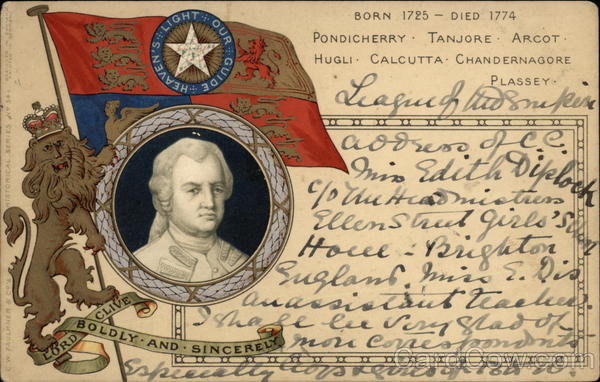 BORN 1725 - DIED 1774
PONDICHERRY · TANJORE · ARCOT ·
HUGLI · CALCUTTA · CHANDERNAGORE
PLASSEY ·
HEAVEN'S LIGHT OUR GUIDE
LORD CLIVE
BOLDLY · AND · SINCERELY
League of the Empire
address of C.C.
Miss Edith Diplock
c/o The Headmistress
Ellen Street Girls' School
Hove - Brighton
England. Miss E. D is
an assistant teacher.
I shall be very glad of
more correspondents
Especially
CardCow.com